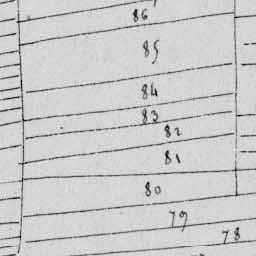 86
85
84
83
82
81
80
79
78